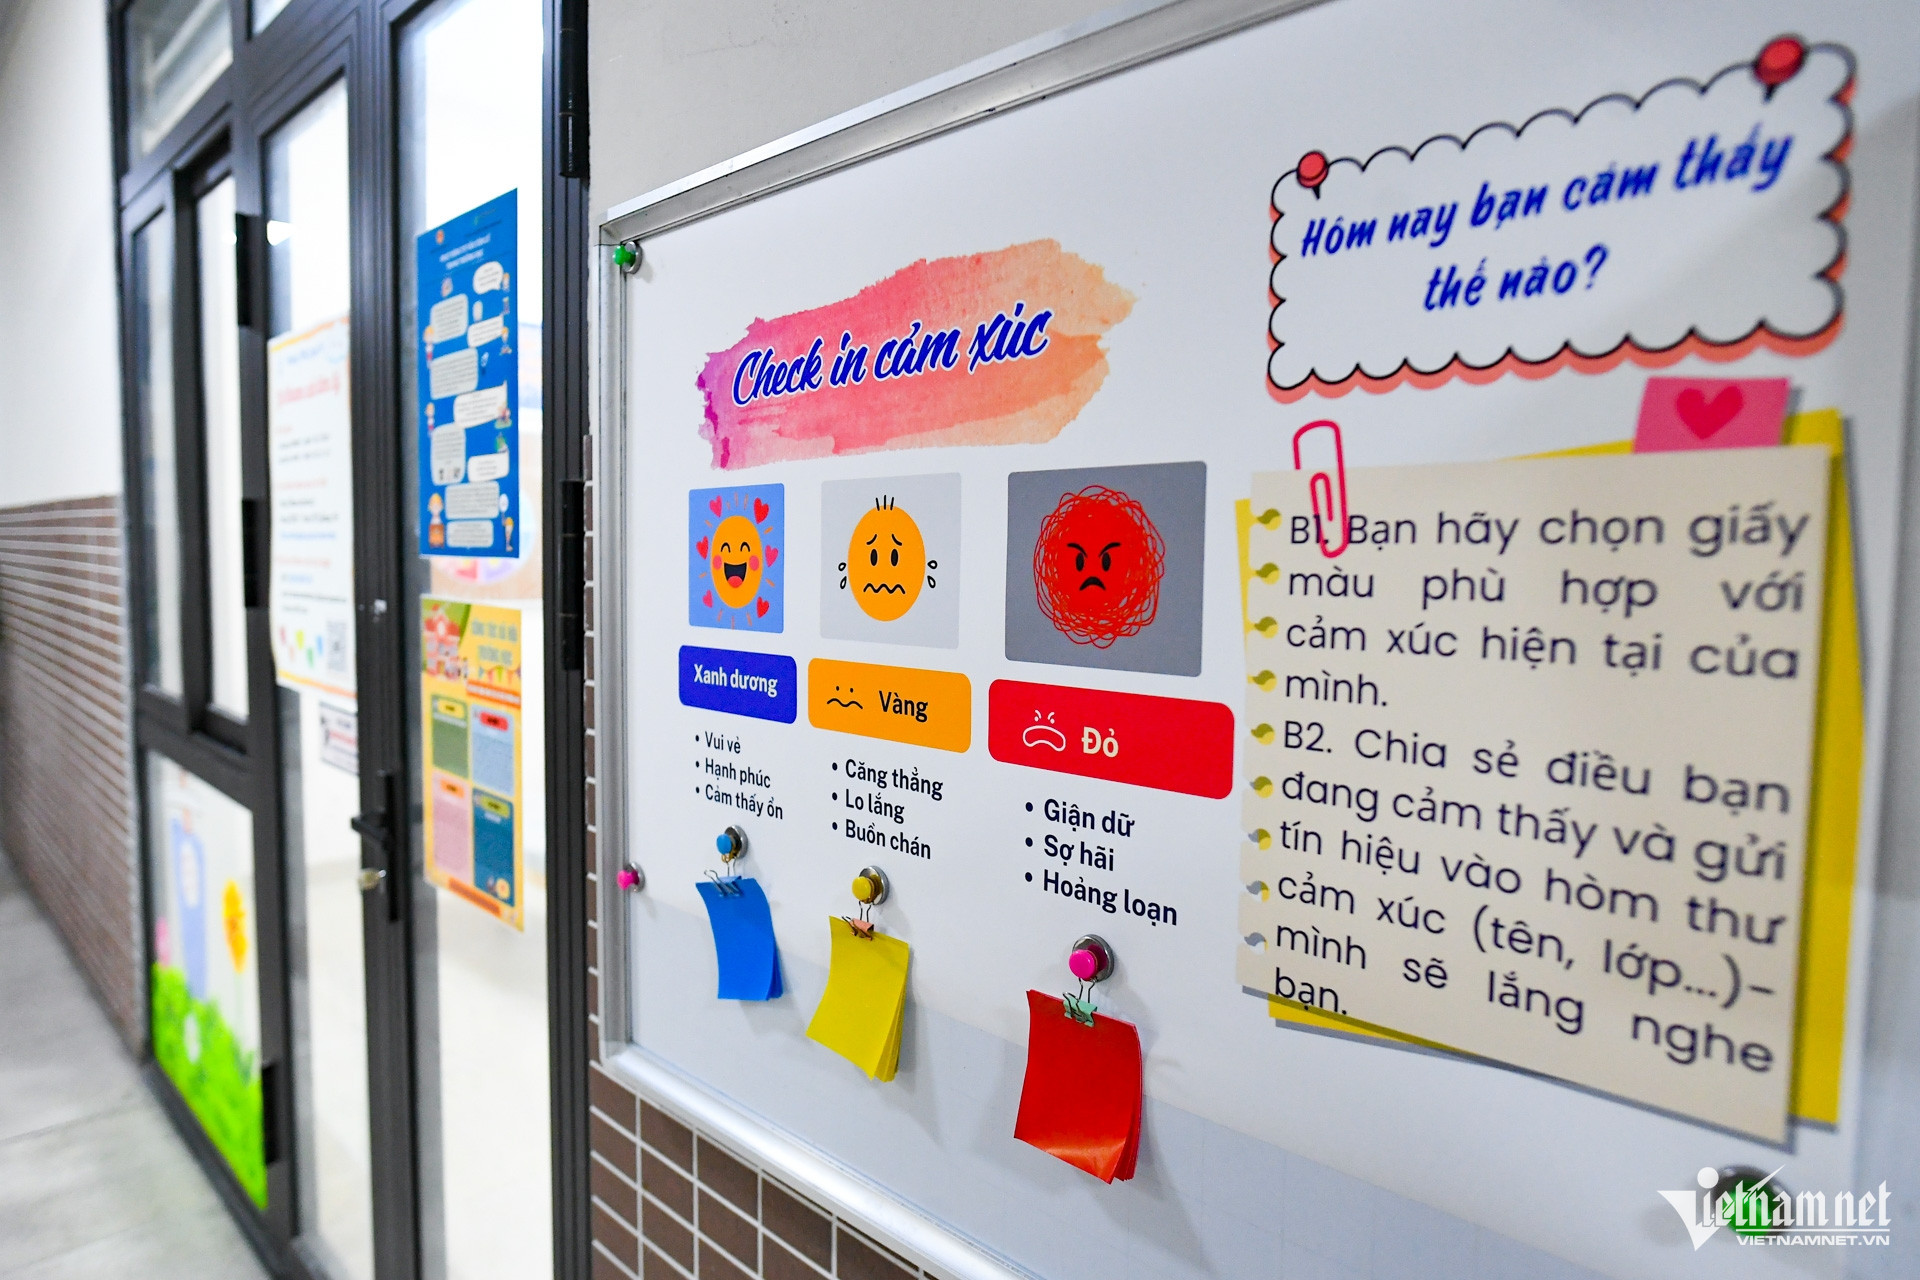 Hôm nay bạn cảm thấy
thế nào?
Check in cảm xúc
Xanh dương
Vàng
Đỏ
• Vui vẻ
• Hạnh phúc
• Cảm thấy ổn
• Căng thẳng
• Lo lắng
• Buồn chán
• Giận dữ
• Sợ hãi
• Hoảng loạn
B1. Bạn hãy chọn giấy
màu phù hợp với
cảm xúc hiện tại của
mình.
B2. Chia sẻ điều bạn
đang cảm thấy và gửi
tín hiệu vào hòm thư
cảm xúc (tên, lớp...)-
mình sẽ lắng nghe
bạn.
Vietnamnet
VIETNAMNET.VN